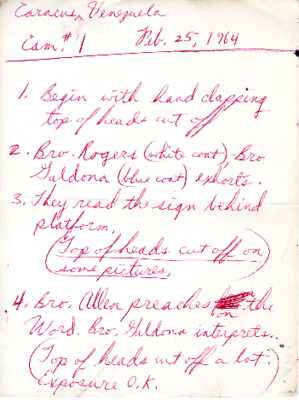 Caracus, Venezuela
Cam.# 1 Feb. 25, 1964
1. Begin with hand clapping
top of heads cut off
2. Bro. Rogers (white coat). Bro
Galdona (blue coat) exhorts.
3. They read the sign behind
platform.
(Top of heads cut off on
some pictures.)
4. Bro. Allen preaches on the
Word. Bro. Galdona interprets..
(Top of heads cut off a lot.
Exposure O.K.